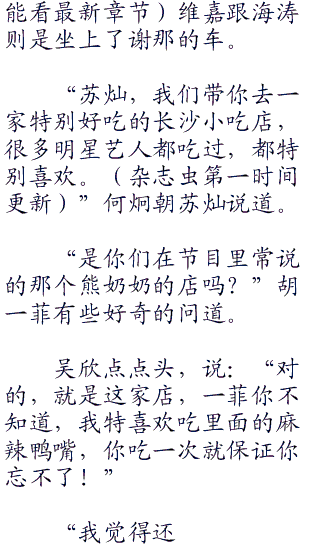 能看最新章节）维嘉跟海涛
则是坐上了谢那的车。
“苏灿，我们带你去一
家特别好吃的长沙小吃店，
很多明星艺人都吃过，都特
别喜欢。（杂志虫第一时间
更新）”何炯朝苏灿说道。
“是你们在节目里常说
的那个熊奶奶的店吗？”胡
一菲有些好奇的问道。
吴欣点点头，说：“对
的，就是这家店，一菲你不
知道，我特喜欢吃里面的麻
辣鸭嘴，你吃一次就保证你
忘不了！”
“我觉得还